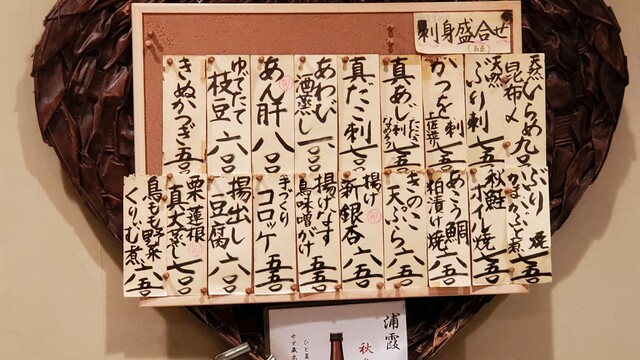 刺身盛合せ
天然ひらめ昆布〆 九五〇
天然ぶり刺 七五〇
かつを刺 土佐造り 七五〇
真あじ刺 たたき なめろう 七五〇
真だこ刺 七〇〇
あわび酒蒸し
あん肝 八〇〇
ゆでたて枝豆 六〇〇
きぬかつぎ 五五〇
ぶりかま 焼
秋鮭ホイル焼 七五〇
あこう鯛粕漬け焼 六五〇
きのこ天ぷら 六五〇
揚げ新銀杏 六五〇
揚げなす鳥味噌がけ 五五〇
手づくりコロッケ 五五〇
揚出し豆腐 六〇〇
栗蓮根真丈蒸し 七〇〇
鳥もも野菜くりーむ煮 六五〇
浦霞
秋
ひと夏